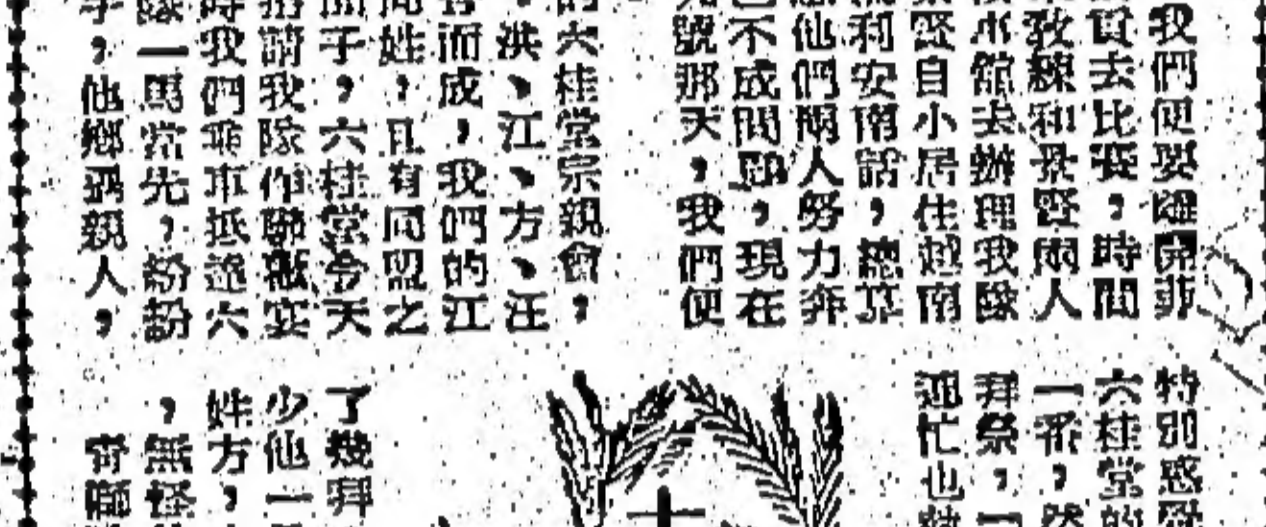 我們便要離開菲
賓去比賽，時間
教練和景賢兩人
館去辦理我隊
賢自小居住越南
利安南話，總算
他們兩人努力奔
不成問題，現在
號那天，我們便
的六桂堂宗親會，
、洪、江、方、汪
而成，我們的江
姓，且有同盟之
子，六桂堂今天
請我隊作聯歡宴
時我們乘車抵達六
隊一馬當先，紛紛
手，他鄉遇親人，
特別感
六桂堂的
一番，然
拜祭，
忙也
十
了幾拜
少他一
姓方，
，無怪